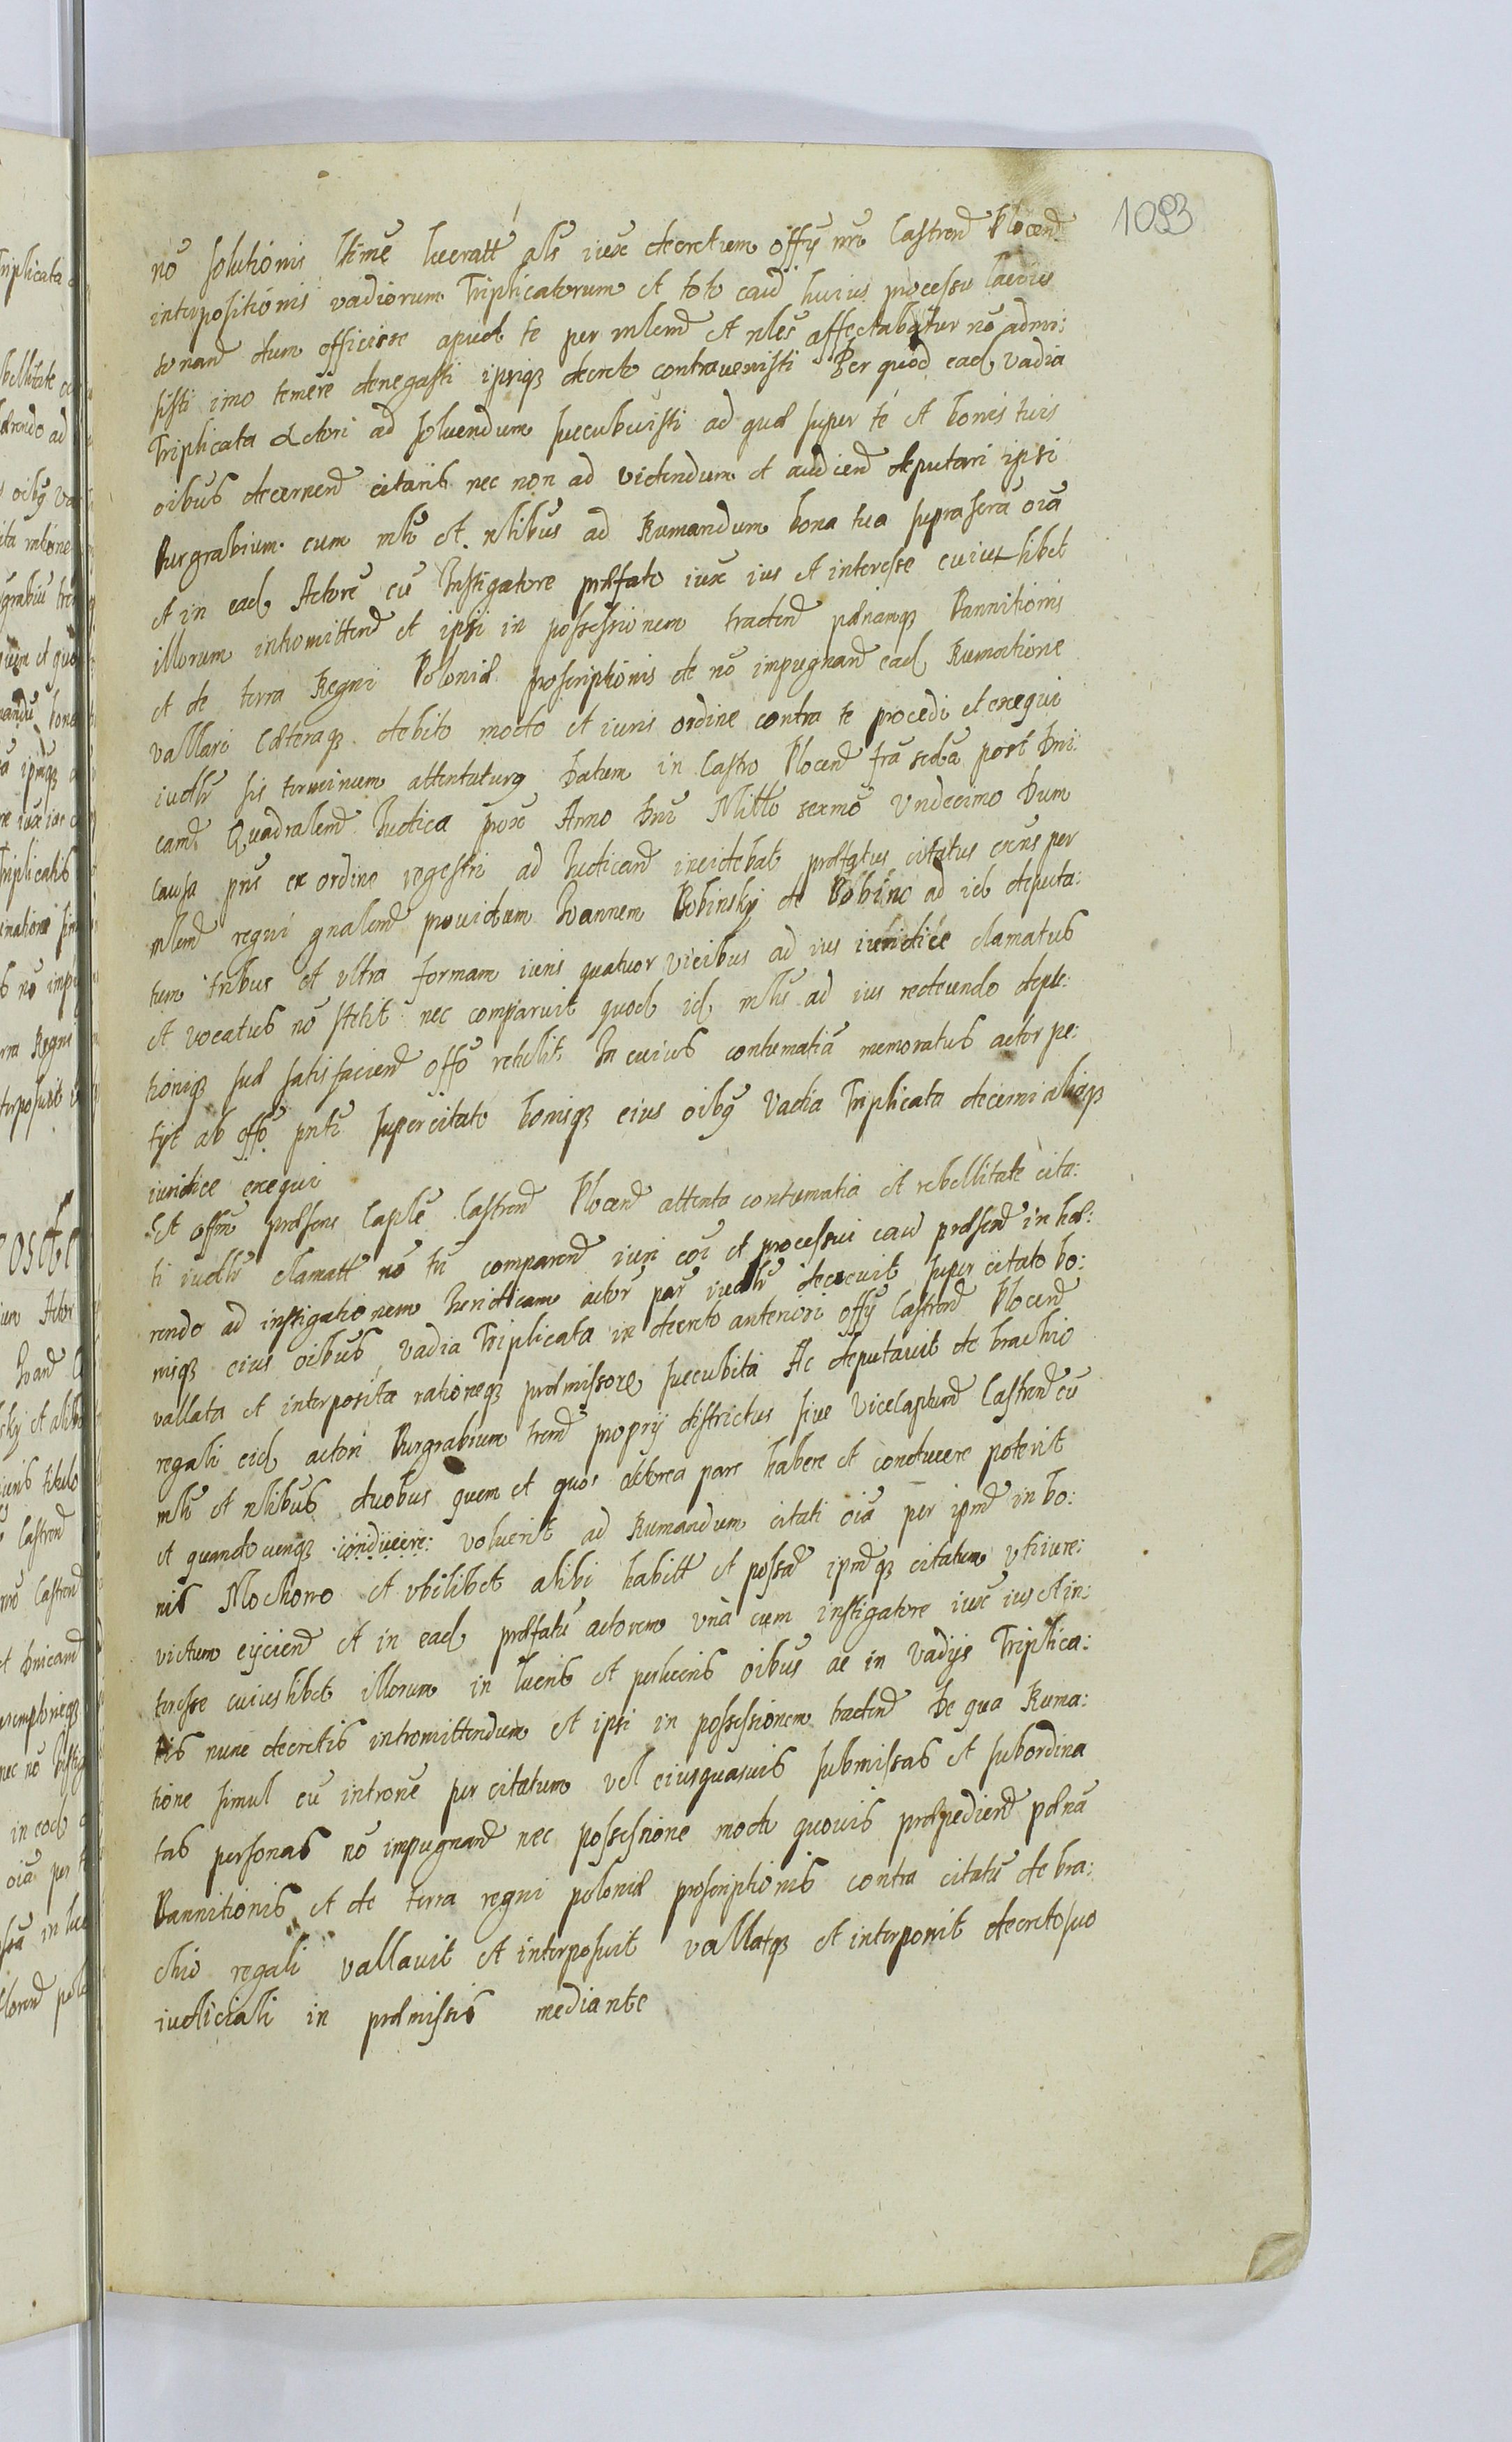 1093
nõ solutionis ltimẽ lucratt als iux decretum offÿ nrĩ Castreñ Plocen
interpositionis vadiorum Triplicatorum et toto caus huius processu latius
sonan dum officiose apud te per mlem et nles affectabatur nõ admi:
sisti imo temere denegasti ipsiqz decreto contravenisti Per quod ead vadia
Triplicata actori ad soluendum succubuisti ad quæ super te et bonis tuis
oibus decernen citaris nec non ad videndum et audien deputari ipsi
Burgrabium cum mli et nlibus ad Rumandum bona tua suprascra oia
et in ead Actore cũ Instigatore præfato iux ius et interesse cuiuslibet
illorum intromitten et ipsi in possessionem traden pænamqz Bannitionis
et de terra Regni Poloniæ proscriptionis de nõ impugnan ead Rumatione
vallari Cæteraqz debito modo et iuris ordine contra te procedi et exequi
iudlr sis terminum attentaturg Datum in Castro Plocen fra scda post Dni:
cam Quadralem Iudica prox Anno Dni Millo sexmo Vndecimo Dum
causa pns ex ordine regestri ad Iudican incidebat præfatus citatus exns per
mlem regni gnalem prouidum Ioannem Bobinsky de Bobino ad id deputa:
tum tribus et vltra formam iuris quatuor vicibus ad ius iuridice clamatus
et vocatus nõ stetit nec comparuit quod id mls ad ius redeundo depu:
tioniqz suæ satisfacien offo retulit In cuius contumatiã memoratus actor pe:
tyt ab offo pnti super citato bonisqz eius oibg Vadia Triplicata decerni aliaqz
iuridice exequi
Et offm præsens Caple Castren Plocen attenta contumatia et rebellitate cita:
ti iudlr clamatt nõ tñ comparen iuri coi et processui caus præsen in hæ:
rendo ad instigationem Iuridicam actor par iudlr decreuit super citato bo:
nisqz eius oibus vadia Triplicata in decreto anteriori offÿ Castren Plocen
vallata et interposita rationeqz præmissorz succubita Ac deputauit de brachio
regali eid actori Burgrabium tren proprÿ districtus siue Vicecaptum Castren cũ
mli et nlibus duobus quem et quos actorea pars habere et conducere poterit
et quandocunqz conducere voluerit ad Rumandum citati oia per ipm in bo:
nis Mochowo et vbilibet alibi habitt et possa ipmqz citatum vti iure:
victum eÿcien et in ead præfatũ actorem vnà cum instigatore iux ius et in:
teresse cuiuslibet illorum in lucris et perlucris oibus ac in Vadÿs Triplica:
tis nunc decretis intromittendum et ipsi in possessionem traden De qua Ruma:
tione simul cũ introne per citatum vel eiusquasuis submissas et subordina
tas personas nõ impugnan nec possessione modo quouis præpedien pænã
Bannitionis et de terra regni poloniæ proscriptionis contra citatũ de bra:
chio regali vallauit et interposuit vallatqz et interponit decreto suo
iudiciali in præmissis mediante